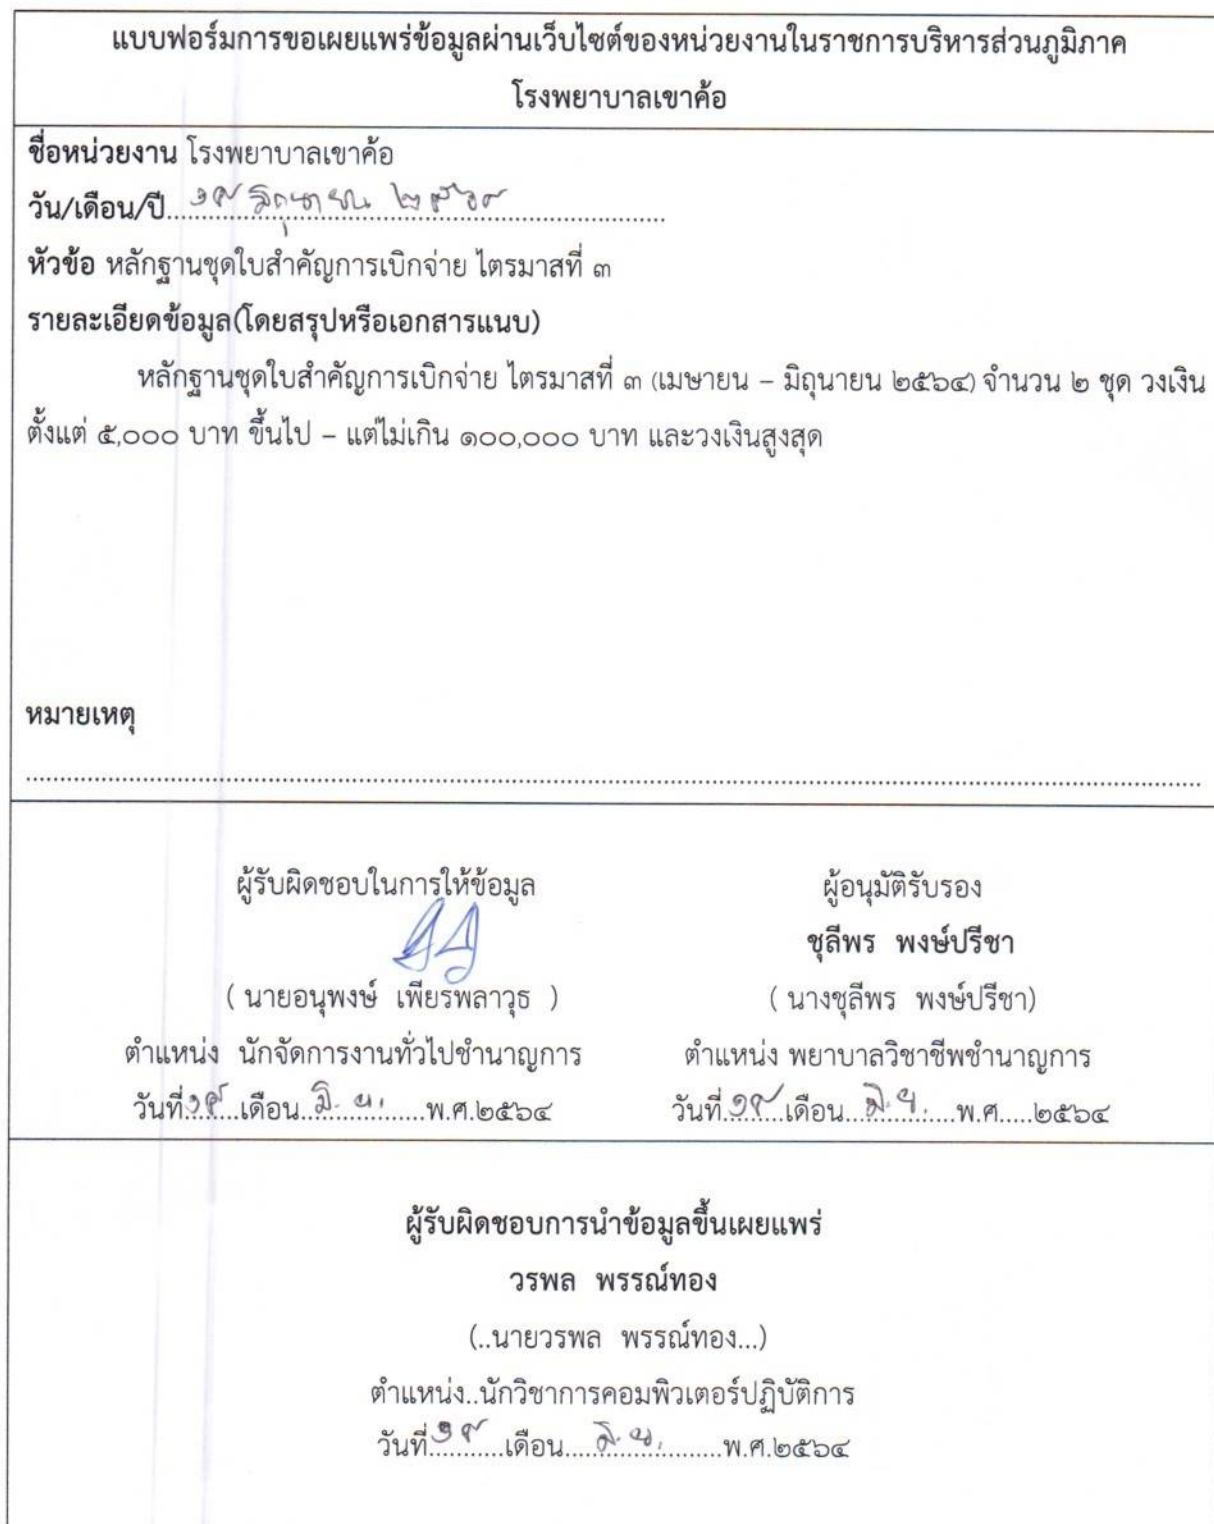 แบบฟอร์มการขอเผยแพร่ข้อมูลผ่านเว็บไซต์ของหน่วยงานในราชการบริหารส่วนภูมิภาค
โรงพยาบาลเขาค้อ
ชื่อหน่วยงาน โรงพยาบาลเขาค้อ
วัน/เดือน/ปี.... มิถุนายน ....
หัวข้อ หลักฐานชุดใบสำคัญการเบิกจ่าย ไตรมาสที่ ๓
รายละเอียดข้อมูล(โดยสรุปหรือเอกสารแนบ)
หลักฐานชุดใบสำคัญการเบิกจ่าย ไตรมาสที่ ๓ (เมษายน – มิถุนายน ๒๕๖๔) จำนวน ๒ ชุด วงเงิน
ตั้งแต่ ๕,๐๐๐ บาท ขึ้นไป – แต่ไม่เกิน ๑๐๐,๐๐๐ บาท และวงเงินสูงสุด
หมายเหตุ
ผู้รับผิดชอบในการให้ข้อมูล
( นายอนุพงษ์ เพียรพลาวุธ )
ตำแหน่ง นักจัดการงานทั่วไปชำนาญการ
วันที่.....เดือน...มิ.ย.......พ.ศ.๒๕๖๔
ผู้อนุมัติรับรอง
ชุลีพร พงษ์ปรีชา
( นางชุลีพร พงษ์ปรีชา)
ตำแหน่ง พยาบาลวิชาชีพชำนาญการ
วันที่.....เดือน...มิ.ย.......พ.ศ.....๒๕๖๔
ผู้รับผิดชอบการนำข้อมูลขึ้นเผยแพร่
วรพล พรรณ์ทอง
(..นายวรพล พรรณ์ทอง...)
ตำแหน่ง..นักวิชาการคอมพิวเตอร์ปฏิบัติการ
วันที่.....เดือน...มิ.ย.......พ.ศ.๒๕๖๔